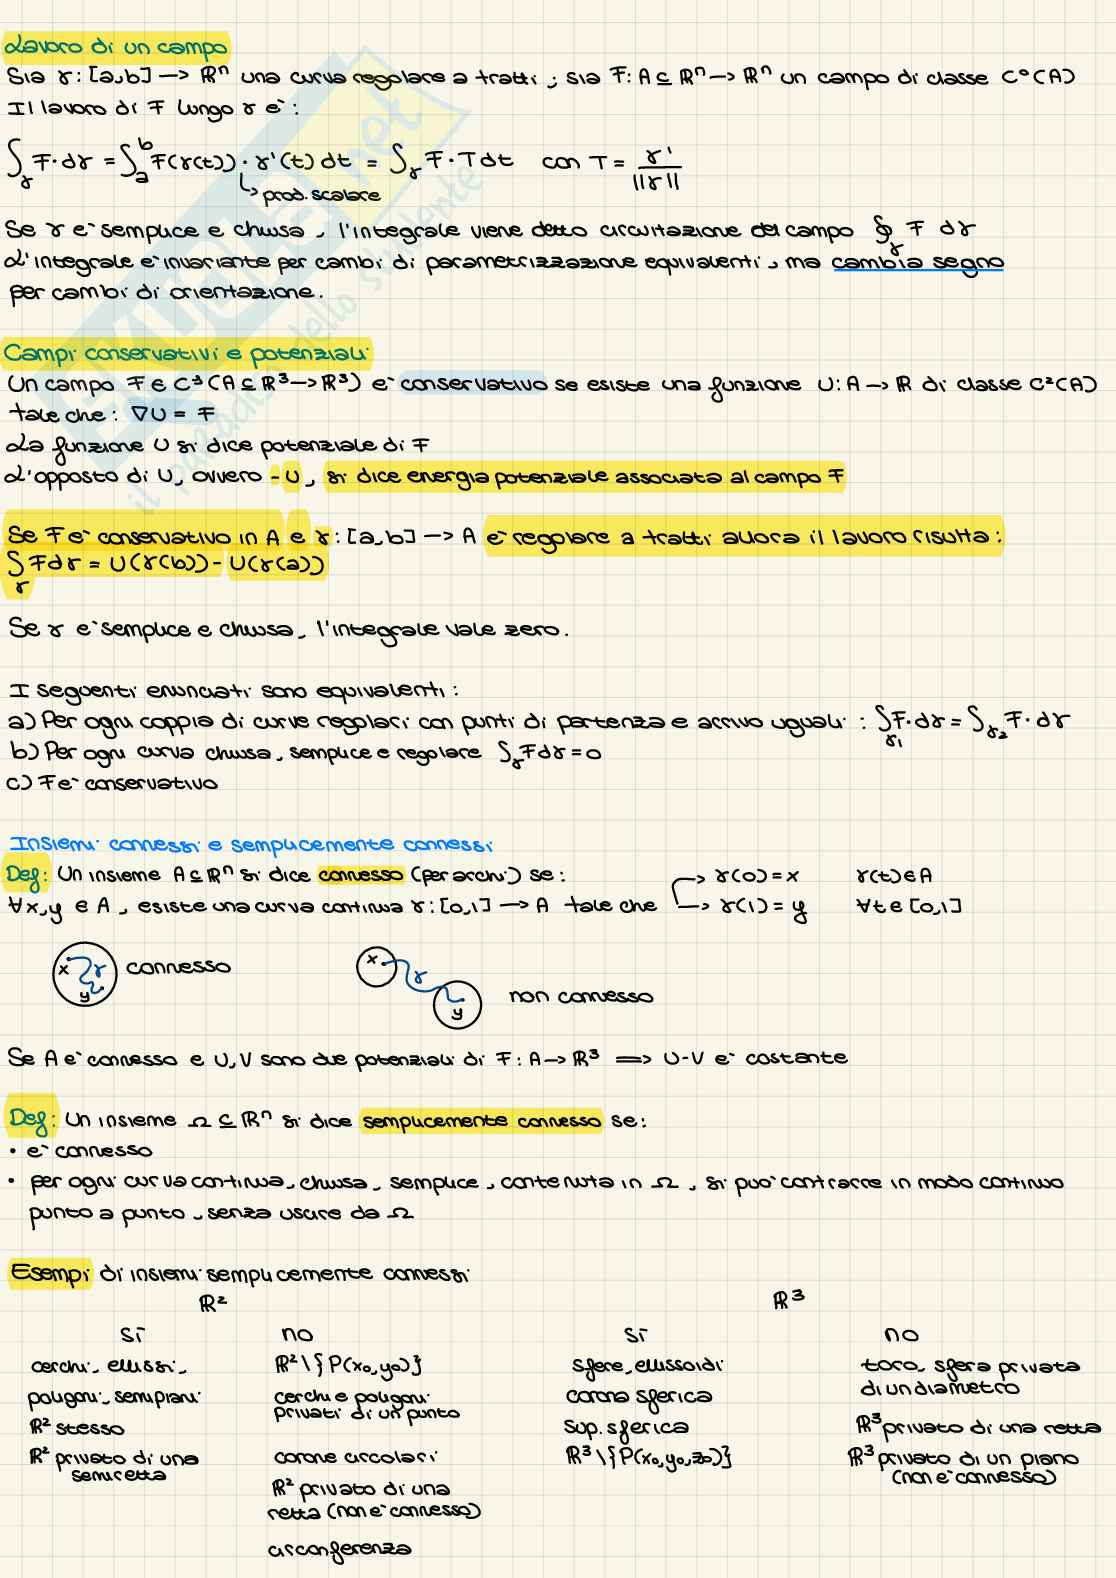 Lavoro di un campo
Sia γ: [a,b] → ℝⁿ una curva regolare a tratti; sia F: A ⊆ ℝⁿ → ℝⁿ un campo di classe C⁰(A)
Il lavoro di F lungo γ è:
∫_γ F·dγ = ∫_a^b F(γ(t))·γ'(t) dt = ∫_γ F·T dt con T = γ' / ||γ||
↳ prod. scalare
Se γ è semplice e chiusa, l'integrale viene detto circuitazione del campo ∮_γ F dγ
L'integrale è invariante per cambi di parametrizzazione equivalenti, ma cambia segno
per cambi di orientazione.
Campi conservativi e potenziali
Un campo F ∈ C¹(A ⊆ ℝ³ → ℝ³) è conservativo se esiste una funzione U: A → ℝ di classe C²(A)
tale che: ∇U = F
La funzione U si dice potenziale di F
L'opposto di U, ovvero -U, si dice energia potenziale associata al campo F
Se F è conservativo in A e γ: [a,b] → A è regolare a tratti allora il lavoro risulta:
∫_γ F dγ = U(γ(b)) - U(γ(a))
Se γ è semplice e chiusa, l'integrale vale zero.
I seguenti enunciati sono equivalenti:
a) Per ogni coppia di curve regolari con punti di partenza e arrivo uguali: ∫_γ₁ F·dγ = ∫_γ₂ F·dγ
b) Per ogni curva chiusa, semplice e regolare ∫_γ F dγ = 0
c) F è conservativo
Insiemi connessi e semplicemente connessi
Def: Un insieme A ⊆ ℝⁿ si dice connesso (per archi) se: → γ(0) = x γ(t) ∈ A
∀x,y ∈ A, esiste una curva continua γ: [0,1] → A tale che → γ(1) = y ∀t ∈ [0,1]
x γ y connesso
x γ y non connesso
Se A è connesso e U,V sono due potenziali di F: A → ℝ³ ⟹ U-V è costante
Def: Un insieme Ω ⊆ ℝⁿ si dice semplicemente connesso se:
• è connesso
• per ogni curva continua, chiusa, semplice, contenuta in Ω, si può contrarre in modo continuo
punto a punto, senza uscire da Ω
Esempi di insiemi semplicemente connessi
ℝ² ℝ³
sì no sì no
cerchi, ellissi, ℝ²\{P(x₀,y₀)} sfere, ellissoidi toro, sfera privata
di un diametro
poligoni, semipiani cerchi e poligoni corona sferica
privati di un punto
ℝ² stesso sup. sferica ℝ³ privato di una retta
ℝ² privato di una corone circolari ℝ³\{P(x₀,y₀,z₀)} ℝ³ privato di un piano
semiretta (non è connesso)
ℝ² privato di una
retta (non è connesso)
circonferenza
SKUOLA.net
il paradiso dello studente